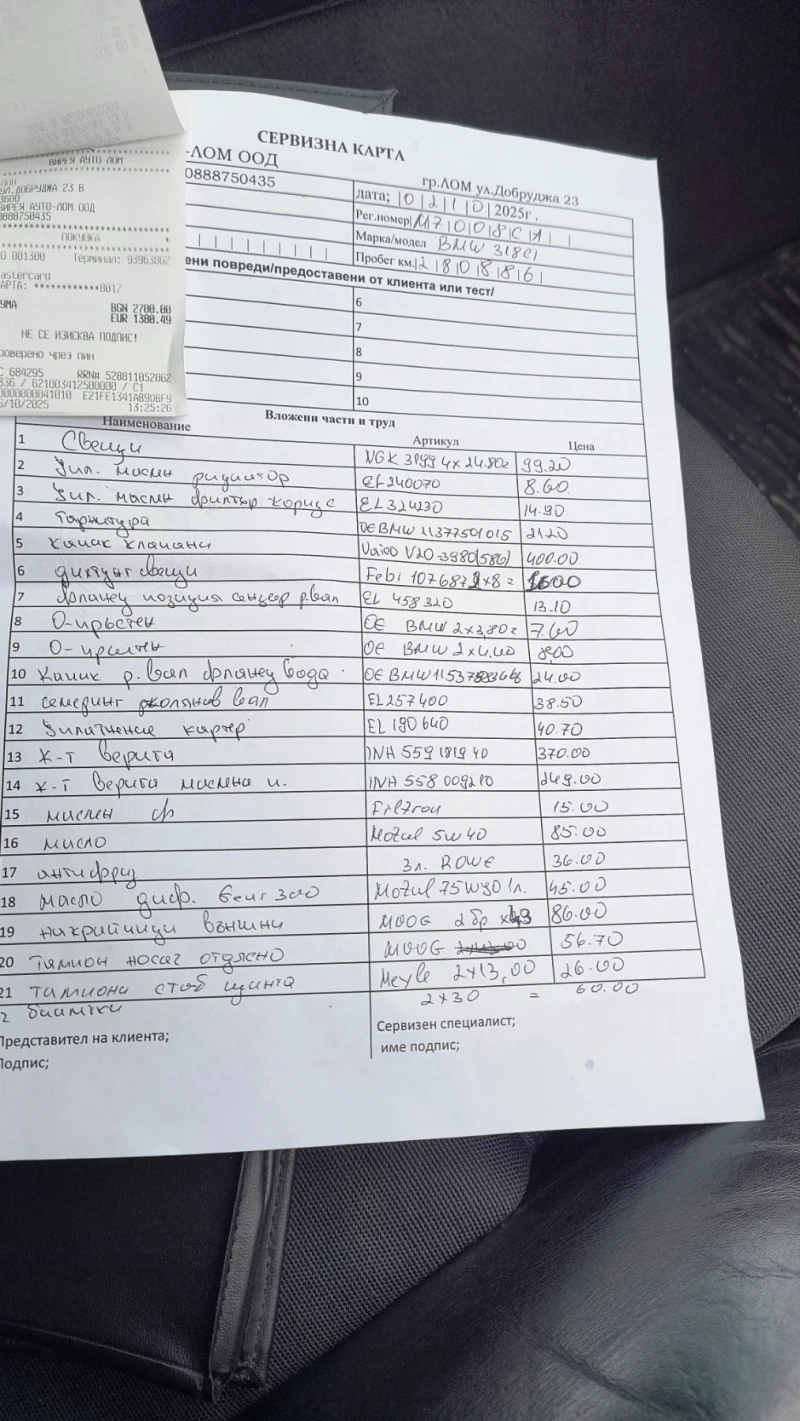 ВИРЕЯ АУТО-ЛОМ
УЛ.ДОБРУДЖА 23 В
3600
ВИРЕЯ АУТО-ЛОМ ООД
0888750435
ПОКУПКА
001300 Терминал: 93963062
astercard
АРТА: ************8017
УМА BGN 2700.00
EUR 1380.49
НЕ СЕ ИЗИСКВА ПОДПИС!
роверено чрез пин
C 684295 RRN# 528811052062
336 / 621003412500000 / C1
0000000041010 E21FE1341AB9DBF9
/10/2025 13:25:26
СЕРВИЗНА КАРТА
-ЛОМ ООД
гр.ЛОМ ул.Добруджа 23
0888750435
дата; |0|2|1|0| 2025г.
Рег.номер M7008CA
Марка/модел BMW 318CI
Пробег км. |2|8|0|8|8|6|
ени повреди/предоставени от клиента или тест/
6
7
8
9
10
Вложени части и труд
Наименование Артикул Цена
1 Свещи NGK 3199 4x24.80= 99.20
2 Упл. маслен радиатор EL240070 8.60
3 Упл. маслен филтър корпус EL324230 14.90
4 Гарнитура OE BMW 11377501015 21.20
5 капак клапани Vaico V20-3980(586) 400.00
6 свещи Febi 107687 2x8=
7 фланец позиция сензор р.вал EL 458320 13.10
8 О-пръстен OE BMW 2x3,80= 7.60
9 О-пръстен OE BMW 2x4,00 8,00
10 Капак р.вал фланец вода OE BMW 24.00
11 семеринг колянов вал EL257400 38.50
12 Уплътнение картер EL 190640 40.70
13 к-т верига INA 559 1819 40 370.00
14 к-т верига маслена п. INA 558 009210 249.00
15 маслен ф Filtron 15.00
16 масло Motul 5w40 85.00
17 антифриз 3л. ROWE 36.00
18 масло диф. Motul 75W90 1л. 45.00
19 накрайници външни MOOG 2бр x43 86.00
20 тампон носач отдясно MOOG 56.70
21 тампона стаб щанга Meyle 2x13,00 26.00
2x30 = 60.00
Представител на клиента; Сервизен специалист;
Подпис; име подпис;